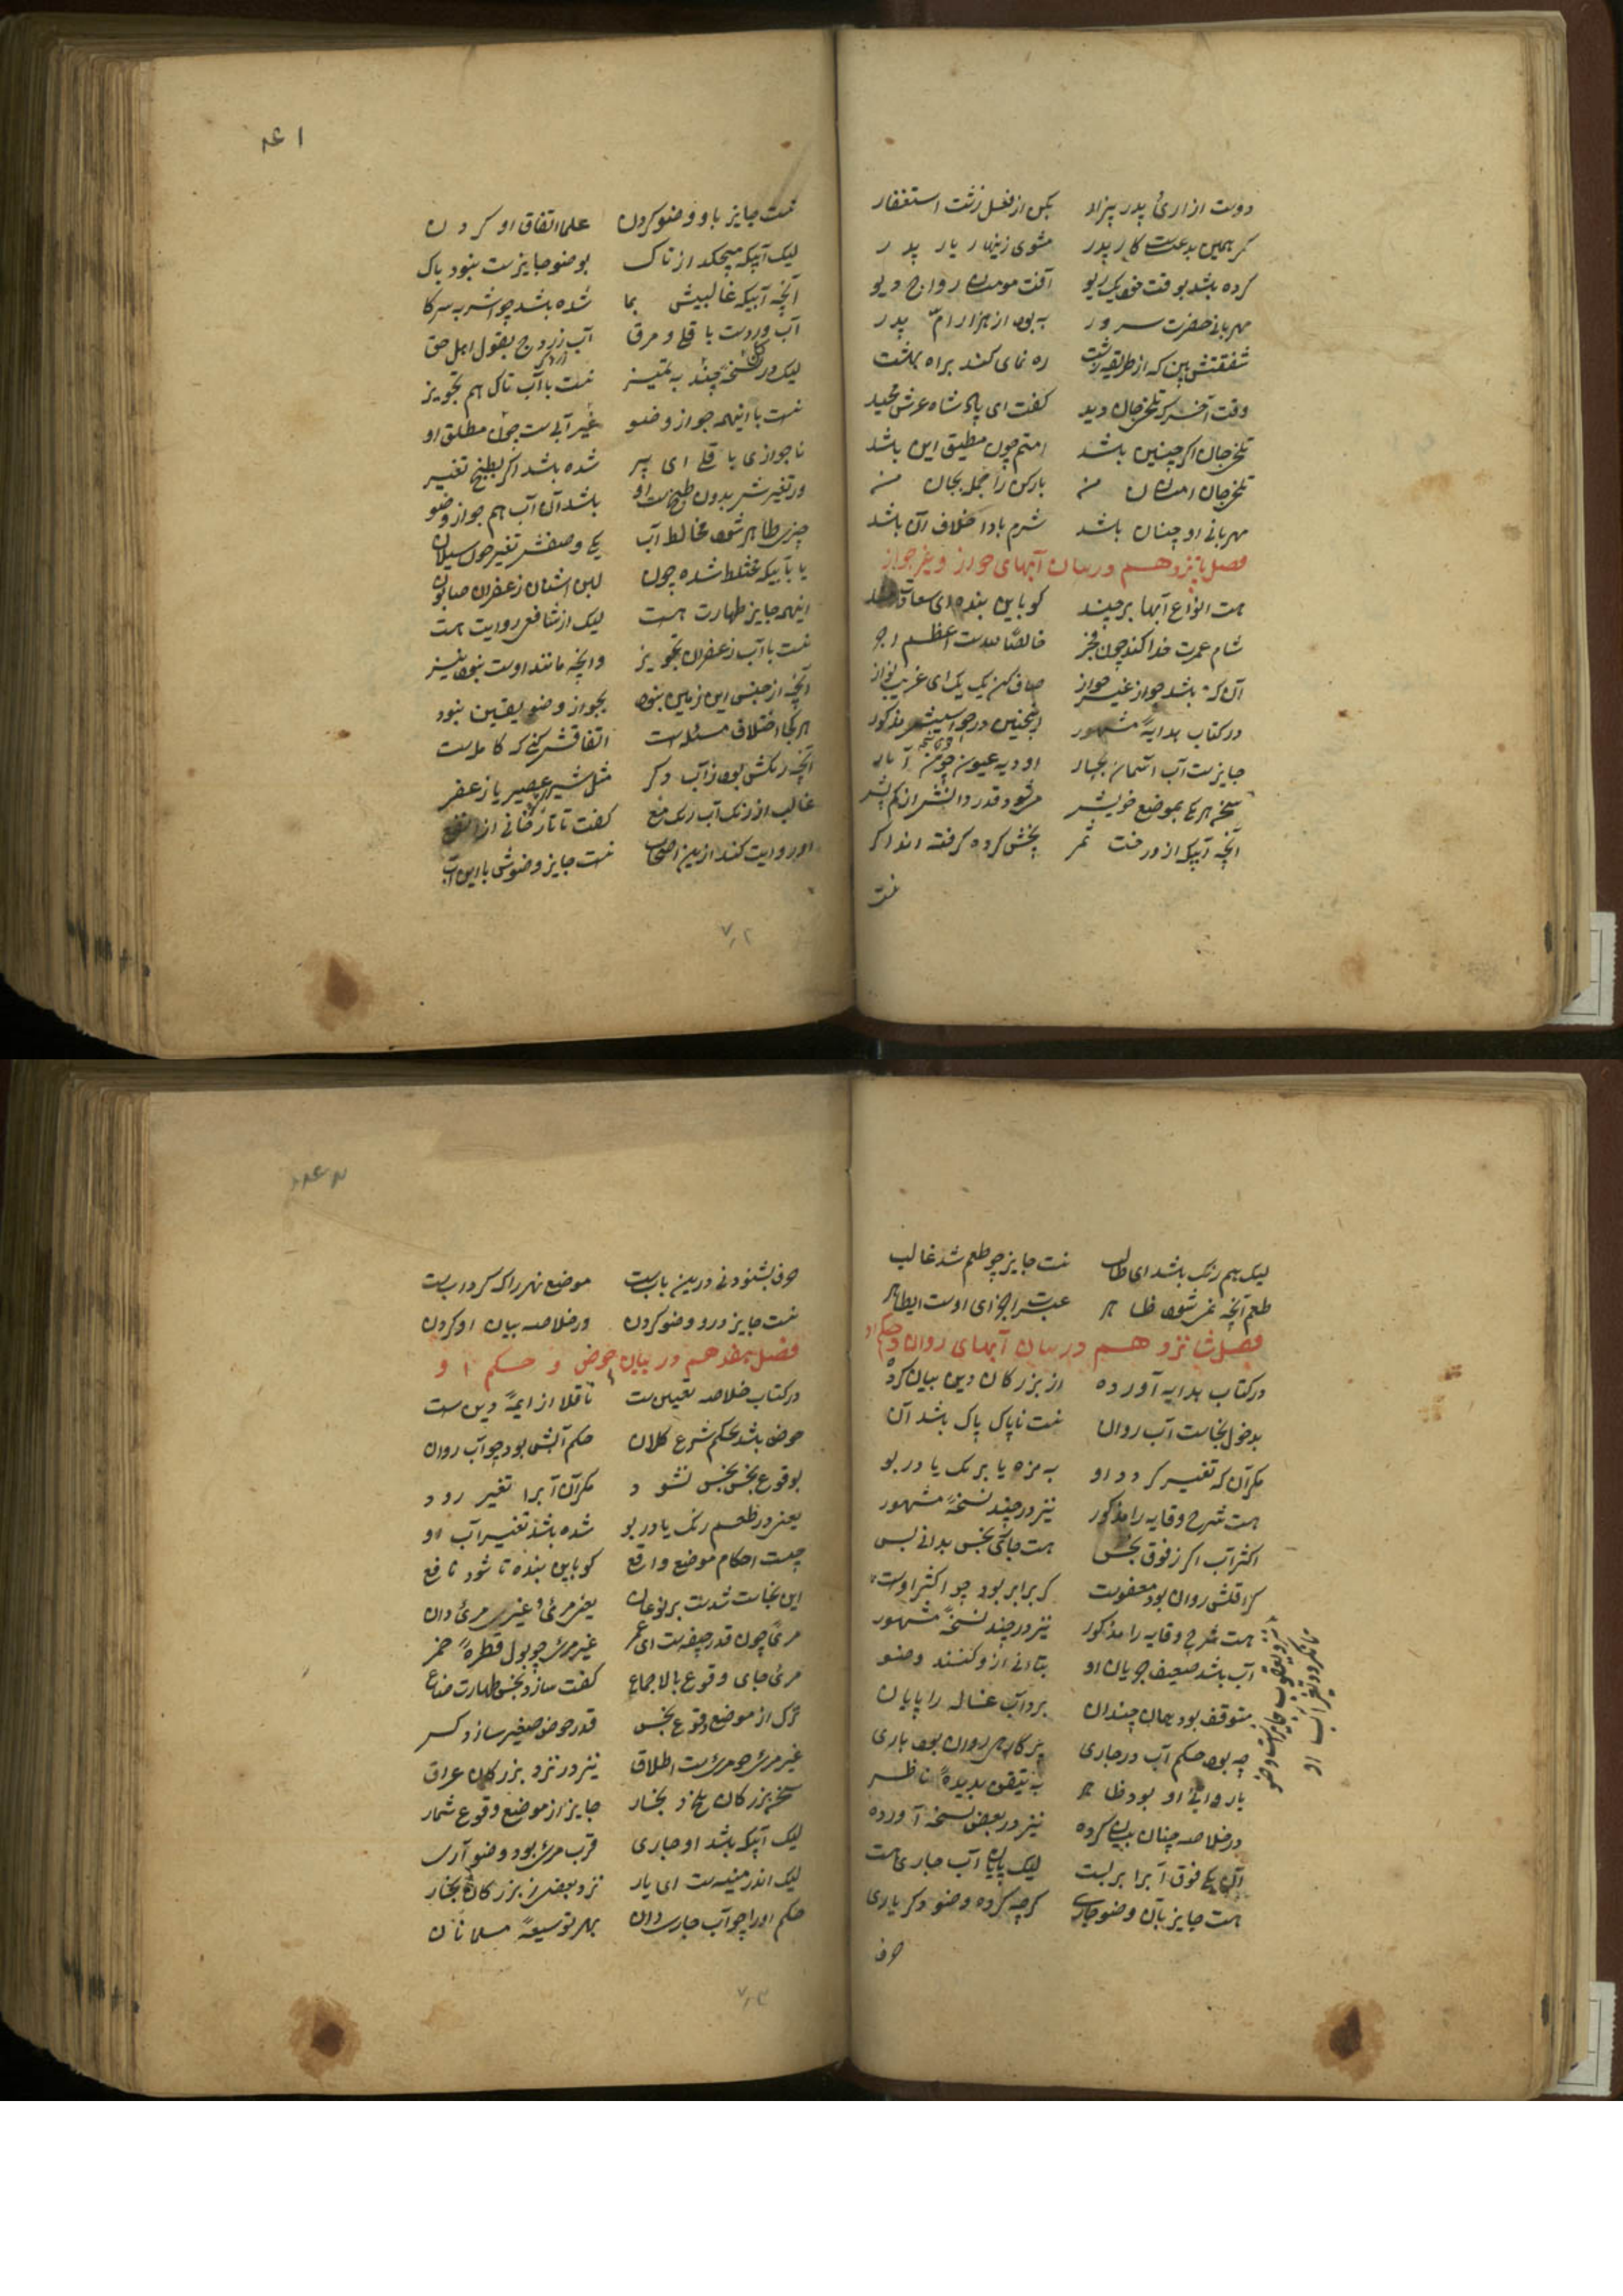 دوست از ارئ پدر بیزار بکن از فعل زشت استغفار
گر همین بدعت کار پدر مشوی زینهار یار پدر
کرده باشد بوقت خود یک ریو آفت مومنان رواج دیو
مهربانی حضرت سرور به بود از هزار ام پدر
شفقتش بین که از طریقه زشت ره نمای کند براه بهشت
وقت آخر که تلخ جان دید گفت ای پادشاه عرش مجید
تلخ جان اگر چنین باشد امتم چون مطیق این باشد
تلخ جان امتان من بارکن را جمله بجان من
مهربانی او چنان باشد شرم بادا خلاف آن باشد
فصل پانزدهم در بیان آبهای جواز و غیر جواز
هست انواع آبها بر چند کو باین بنده ای سعادتمند
شام عمرت خدا کند چون فجر خالصا لله ست اعظم اجر
آن که باشد جواز غیر جواز صاف کن یک یک ای غریب نواز
در کتاب هدایهٔ مشهور اینچنین در جوابش مذکور
جایزست آب آسمان بجبار اودیه عیون چو من آبار
سخن هر یکی بموضع خویش می شود قدر دانش از کم بیش
آنچه آبیکه از درخت ثمر بخش کرده گرفته اند اگر
نیست
۱۶۱
نیست جایز باو وضو کردن علما اتفاق او کردن
لیک آبیکه میچکد از تاک بوضو جایزست نبود باک
آنچه آبیکه غالبیش بما شده باشد چو اشربه سرکا
آب وردست باقلی و مرق آب زردج بقول اهل حق
لیک در نسخهٔ چند به تمیز نیست با آب تاک هم تجویز
نیست با اینهمه جواز وضو غیر آبی ست چون مطلق او
ناجوازی باقلی ای پیر شده باشد اگر بطبخ تغییر
ور تغیرش بدون طبخ ست او باشد آن آب هم جواز وضو
چیزی طاهر شود مخالط آب یکی وصفش تغیر چون سیلاب
یا بآبیکه مختلط شده چون لبن اشنان زعفران صابون
اینهمه جایز طهارت هست لیک از شافعی روایت هست
نیست با آب زعفران تجویز و آنچه مانند اوست بود نیز
آنچه از جنس این زمین نبود بجواز وضو یقین نبود
هر کجا اختلاف مسئله است اتفاقش کنی که کامله ست
آنچه رنگش بود ز آب دگر مثل شیر عصیر یا زعفر
غالب از رنگ آب رنگ منع گفت تاتارخانی از
او روایت کند ازین اصحاب نیست جایز وضوش با این آب
۷۲
لیک هم رنگ باشد ای طالب نیست جایز چو طعم شد غالب
طعم آنچه نمی شود ظاهر عبرت اجزای اوست ایطاهر
فصل شانزدهم در بیان آبهای روان و حکم او
در کتاب هدایه آورده از بزرگان دین بیان کرده
بدخول نجاست آب روان نیست ناپاک پاک باشد آن
مگر آن که تغییر گردد او به مزه یا برنگ یا در بو
هست شرح وقایه را مذکور نیز در چند نسخهٔ مشهور
اکثر آب اگر ز فوق نجس هست جای نجس بدانی بس
گر اقلش روان بود معفوست گر برابر بود چو اکثر اوست
هست شرح وقایه را مذکور نیز در چند نسخهٔ مشهور
آب باشد ضعیف جریان او بتانی ازو کنند وضو
متوقف بود بهمان چندان برد آب غساله را پایان
چه بود حکم آب در جاری پر کاهی روان بود باری
باروانی او بود ظاهر به تیقن بدیدهٔ ناظر
در خلاصه چنان بیان کرده نیز در بعض نسخه آورده
آن یکی فوق آبرا بربست لیک پایان آب جاری هست
هست جایز بآن وضو جاری گرچه کرده وضو دگر یاری
حرف
حرف بشنو دنی درین بابست موضع نهر را که گردابست
نیست جایز درو وضو کردن در خلاصه بیان او کردن
فصل هفدهم در بیان حوض و حکم او
در کتاب خلاصه تعیین ست ناقلا از ایمهٔ دین ست
حوض باشد بحکم شرع کلان حکم آبش بود چو آب روان
بوقوع نجس نجس نشود مگر آن آبرا تغیر رود
یعنی در طعم رنگ یا در بو شده باشد تغییر آب او
چیست احکام موضع واقع کو باین بنده تا شود نافع
این نجاست شدست بر نوعان یعنی مرئی و غیر مرئی دان
مرئی چون قدر جیفه ست ای عمر غیر مرئی چو بول قطرهٔ خمر
مرئی جای وقوع بالاجماع گفت سازد نجس طهارت ضاع
ترک از موضع وقوع نجس قدر حوض صغیر سازد کس
غیر مرئی چو مرئی ست اطلاق نیز در نزد بزرگان عراق
سخن بزرگان بلخ و بخار جایز از موضع وقوع شمار
لیک آبیکه باشد او جاری قرب مرئی بود وضو آری
لیک اندر منیه ست ای یار نزد بعضی از بزرگان بخار
حکم او را چو آب جاری دان بهر توسیعهٔ مسلمانان
۷۳